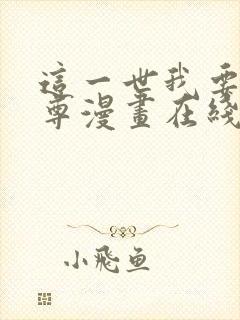 這一世我要
尊漫畫在綫
小飛魚